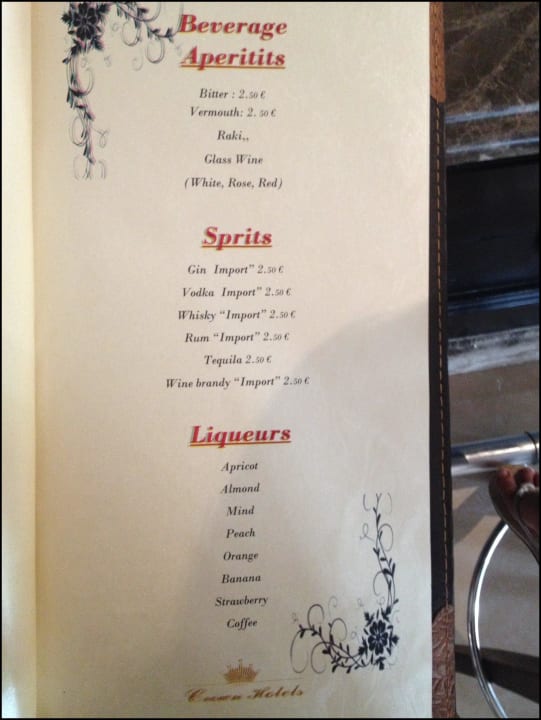 Beverage
Aperitits
Bitter : 2.50 €
Vermouth: 2. 50 €
Raki,,
Glass Wine
(White, Rose, Red)
Sprits
Gin Import” 2.50 €
Vodka Import” 2.50 €
Whisky “Import” 2.50 €
Rum “Import” 2.50 €
Tequila 2.50 €
Wine brandy “Import” 2.50 €
Liqueurs
Apricot
Almond
Mind
Peach
Orange
Banana
Strawberry
Coffee
Crown Hotels